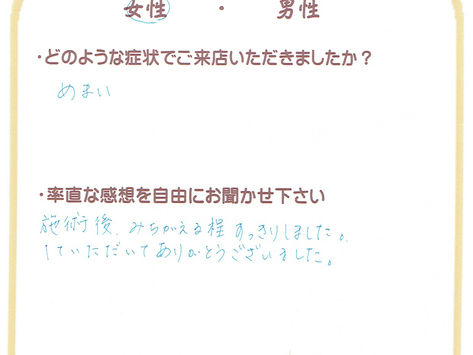 女性 ・ 男性
・どのような症状でご来店いただきましたか？
めまい
・率直な感想を自由にお聞かせ下さい
施術後、みちがえる程すっきりしました。
していただいてありがとうございました。